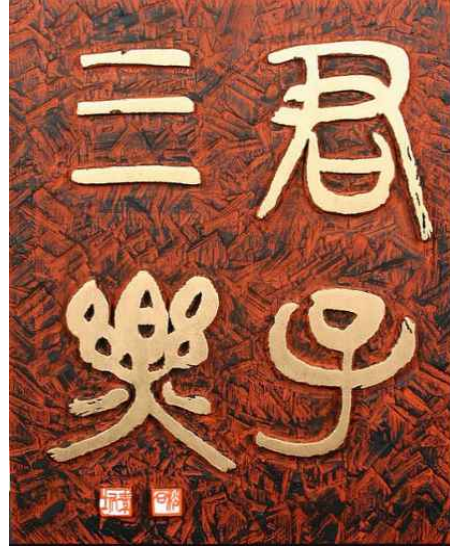 君子
三樂